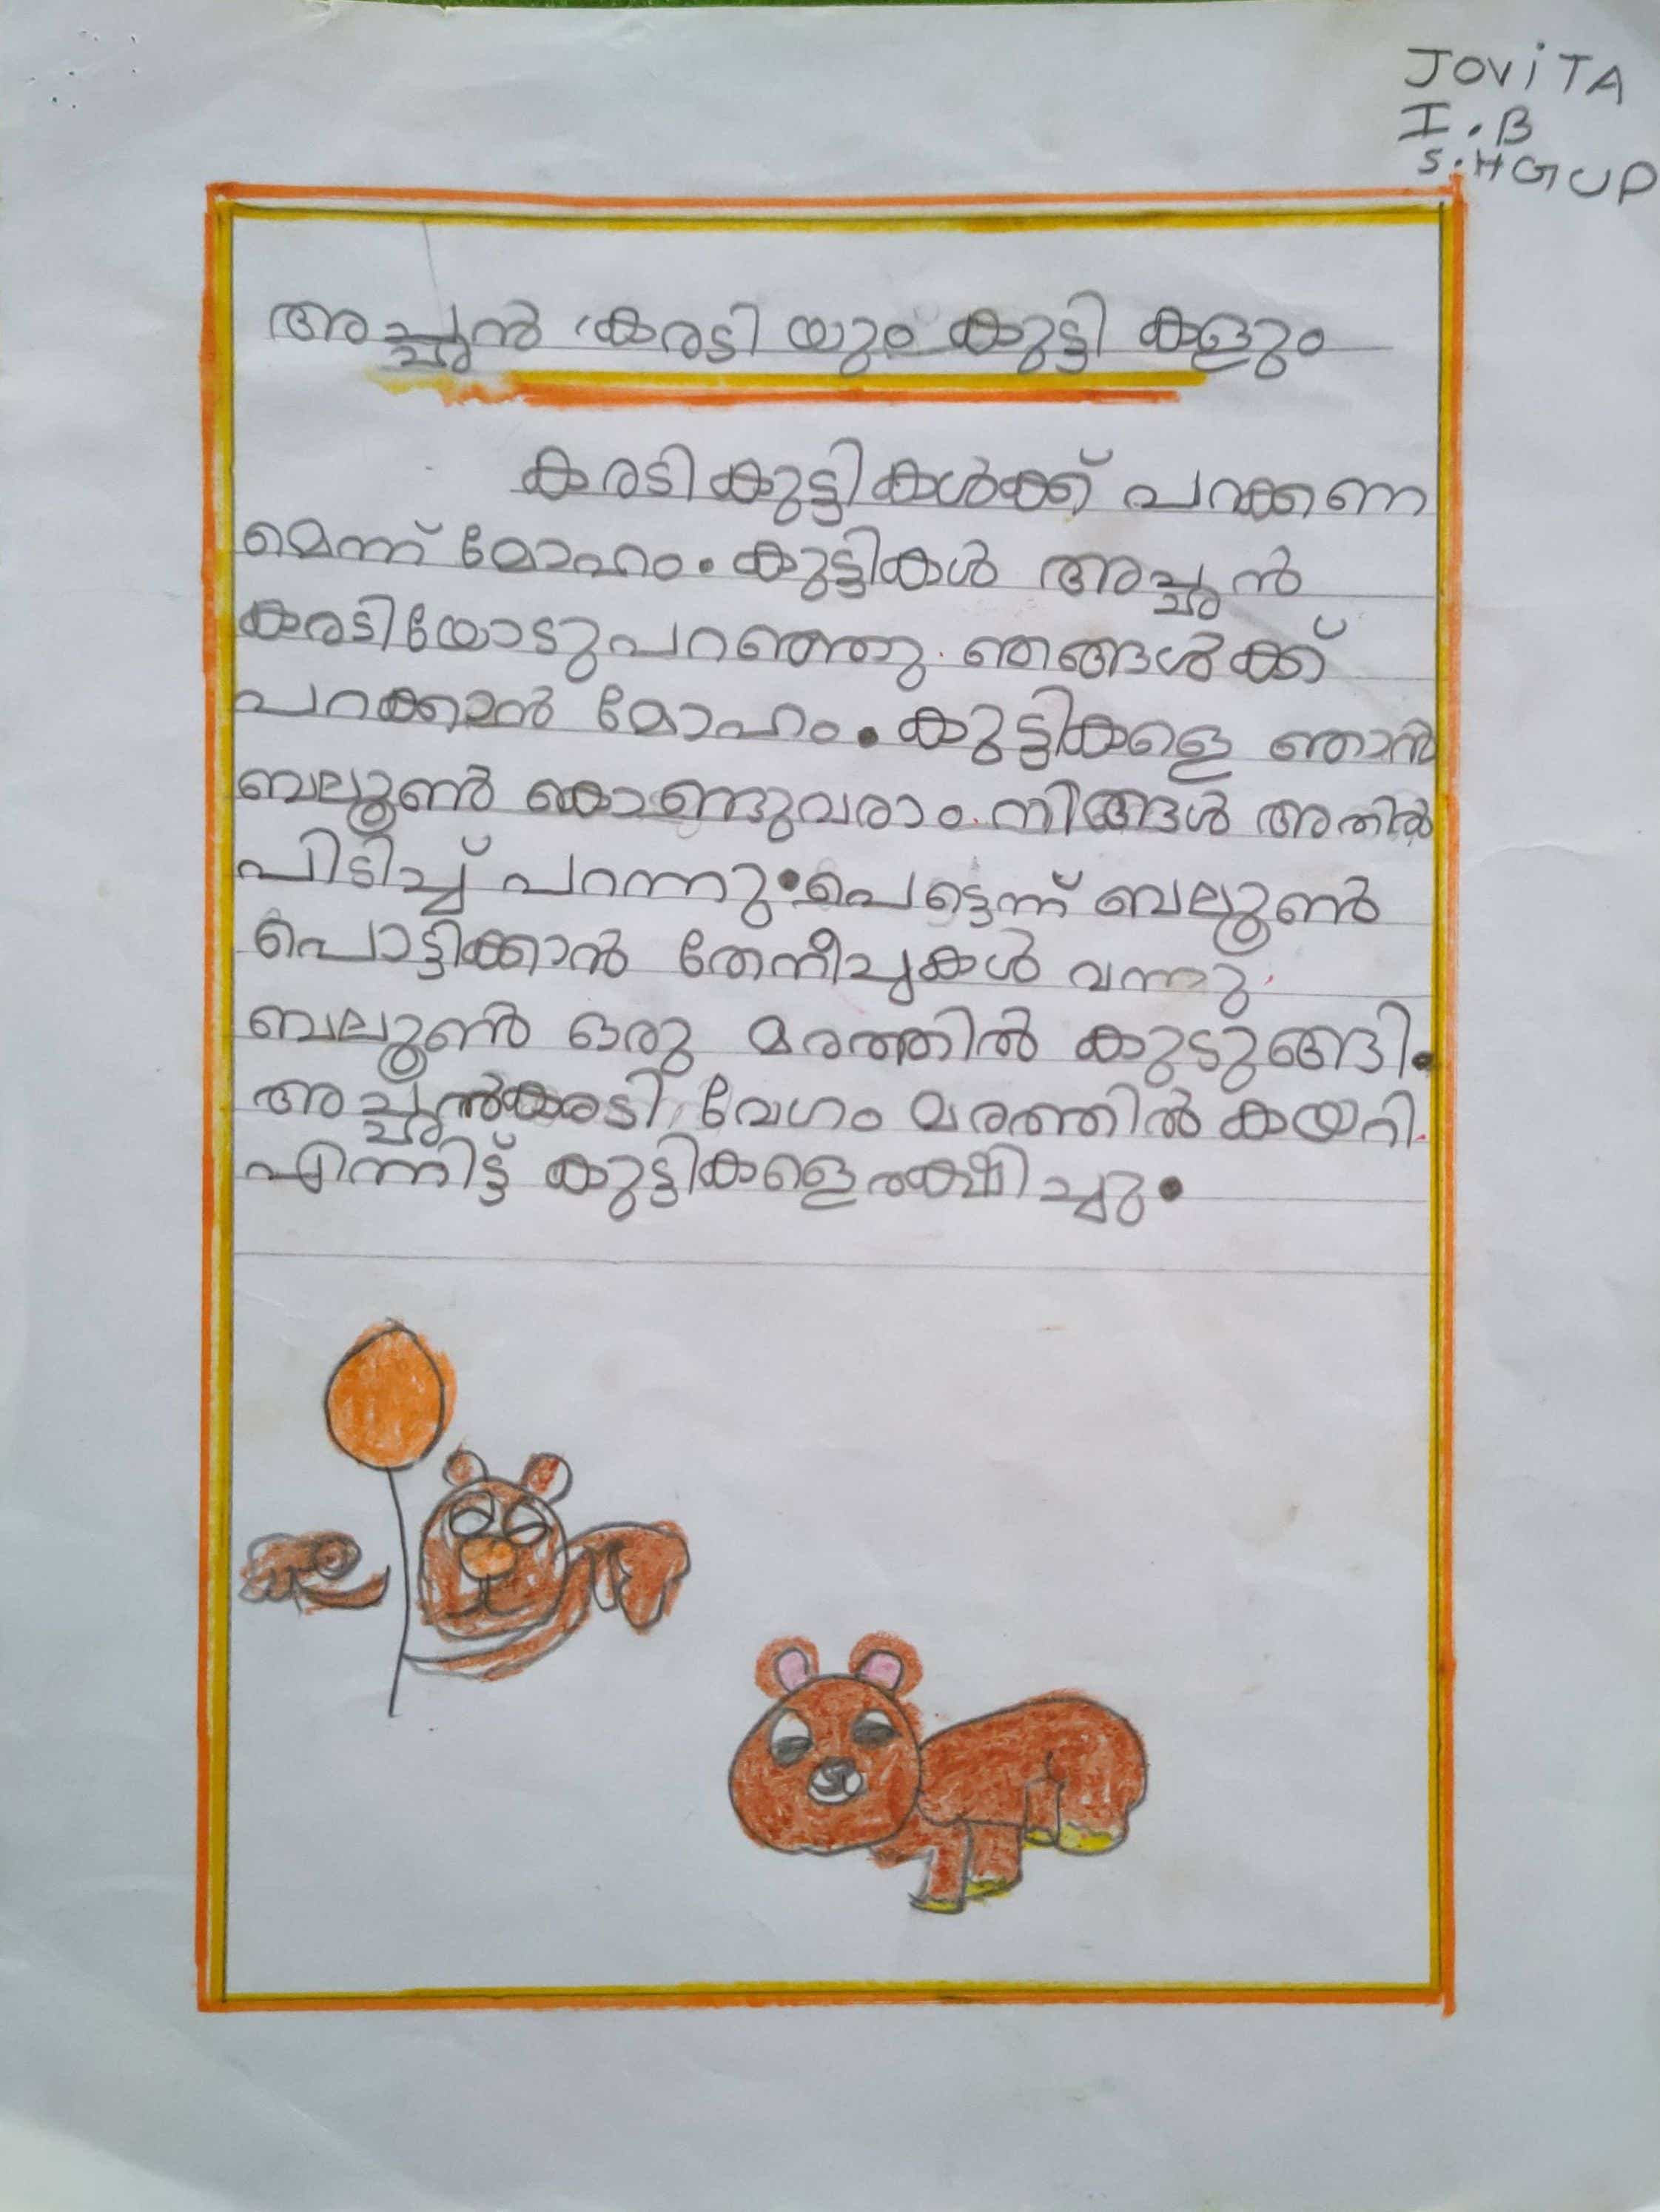 JOViTA
I.B
S.HGUP
അപ്പൂൻ കരടി യും കുട്ടി കളും
കരടി കുട്ടി കൾക്ക് പറക്കണ
മെന്ന് മോഹം. കുട്ടികൾ അപ്പൂൻ
കരടിയോടു പറഞ്ഞു. ഞങ്ങൾക്ക്
പറക്കാൻ മോഹം. കുട്ടികളെ ഞാൻ
ബലൂൺ കൊണ്ടുവരാം. നിങ്ങൾ അതിൽ
പിടിച്ച് പറന്നു. പെട്ടെന്ന് ബലൂൺ
പൊട്ടിക്കാൻ തേനീച്ചകൾ വന്നു.
ബലൂൺ ഒരു മരത്തിൽ കുടുങ്ങി.
അപ്പൂൻകരടി വേഗം മരത്തിൽ കയറി.
എന്നിട്ട് കുട്ടികളെ രക്ഷി ച്ചു.